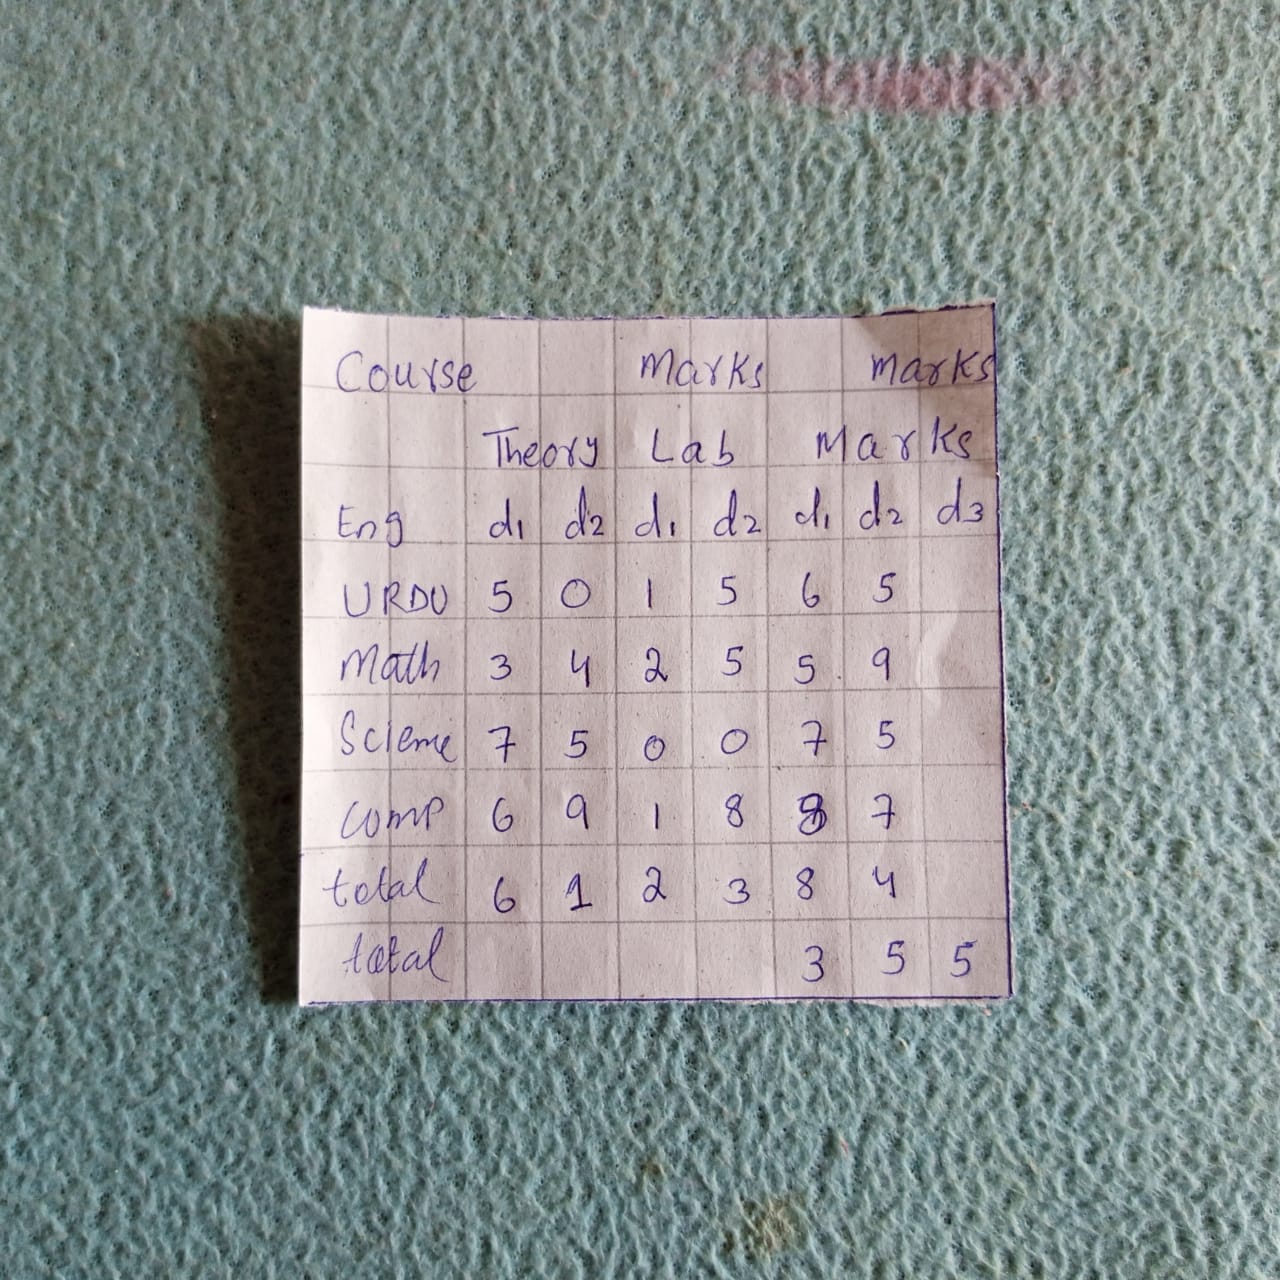 Course Marks Marks
Theory Lab Marks
Eng d1 d2 d1 d2 d1 d2 d3
URDU 5 0 1 5 6 5
Math 3 4 2 5 5 9
Scieme 7 5 0 0 7 5
comp 6 9 1 8 8 7
total 6 1 2 3 8 4
total 3 5 5